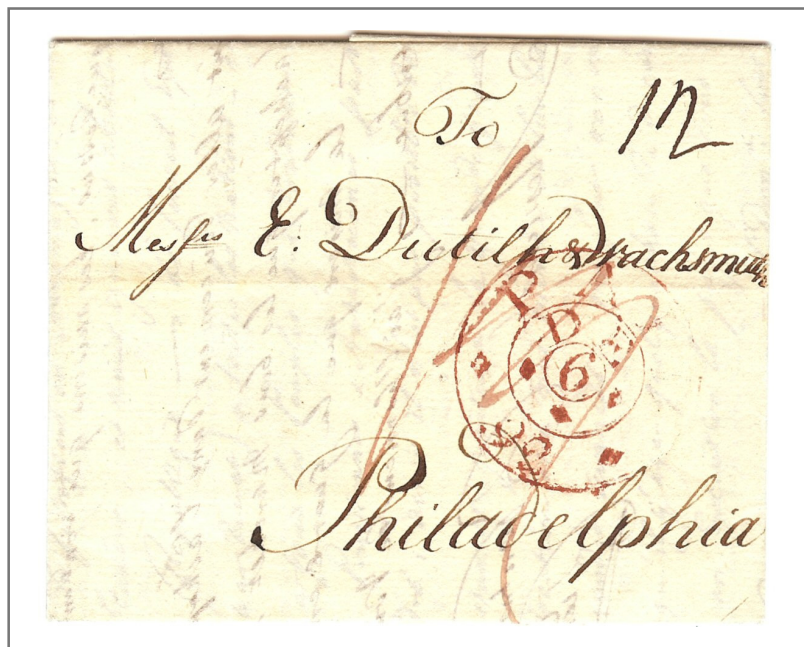 To
12
Mess.rs E: Dutilh & Wachsmuth
PA
DE
6
95
Philadelphia